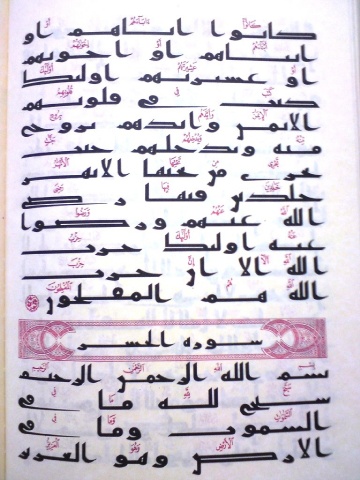 كانوا اباهم او
ابناهم او اخونهم
او عشيرتهم اولئك
كتب في قلوبهم
الايمن وايدهم بروح
منه ويدخلهم جنت
تجري من تحتها الانهر
خلدين فيها رضي
الله عنهم ورضوا
عنه اولئك حزب
الله الا ان حزب
الله هم المفلحون
سورة الحشر
بسم الله الرحمن الرحيم
سبح لله ما في
السموت وما في
الارض وهو العزيز